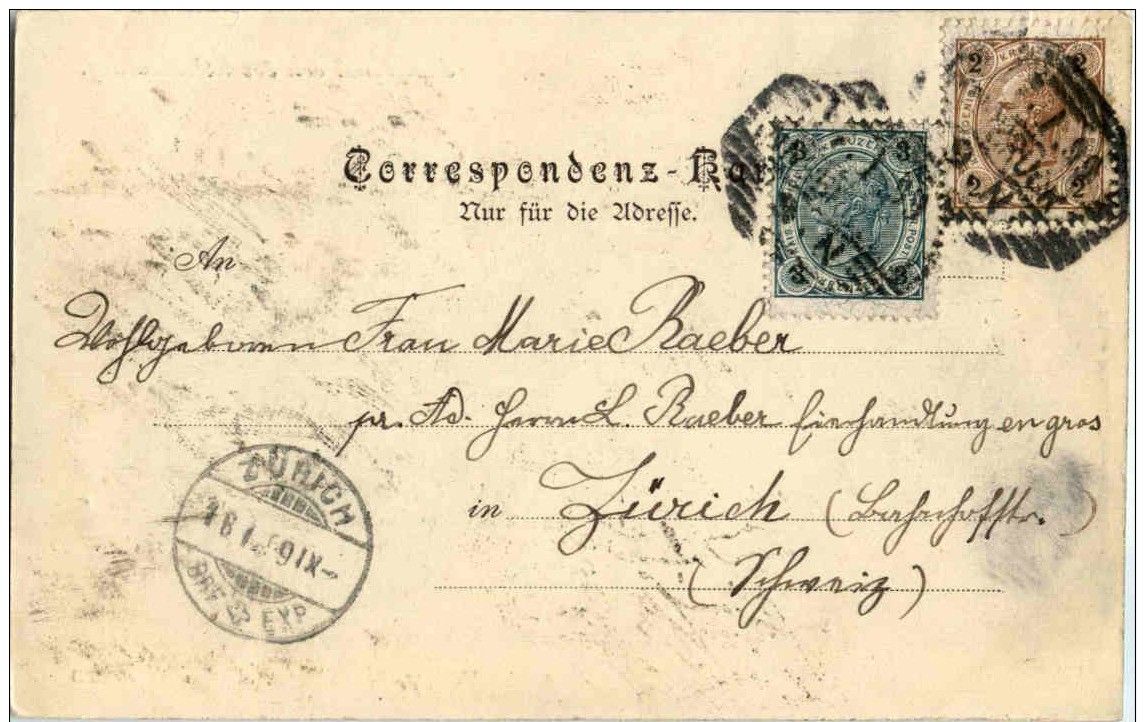 Correspondenz-Kar
Nur für die Adresse.
An
Wohlgeboren Frau Marie Raeber
pr. Ad. Herrn L. Raeber Eierhandlung en gros
in Zürich (Bahnhofstr.)
(Schweiz)
ZÜRICH
BRF. EXP.
2 2
2 2
3 3
3